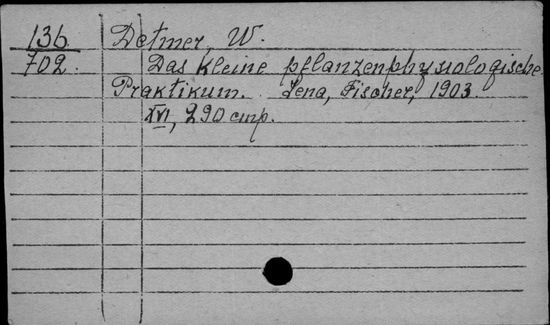 136 Detmer, W.
702. Das kleine pflanzenphysiologische
Praktikum. Jena, Fischer, 1903.
XVI, 290 стр.